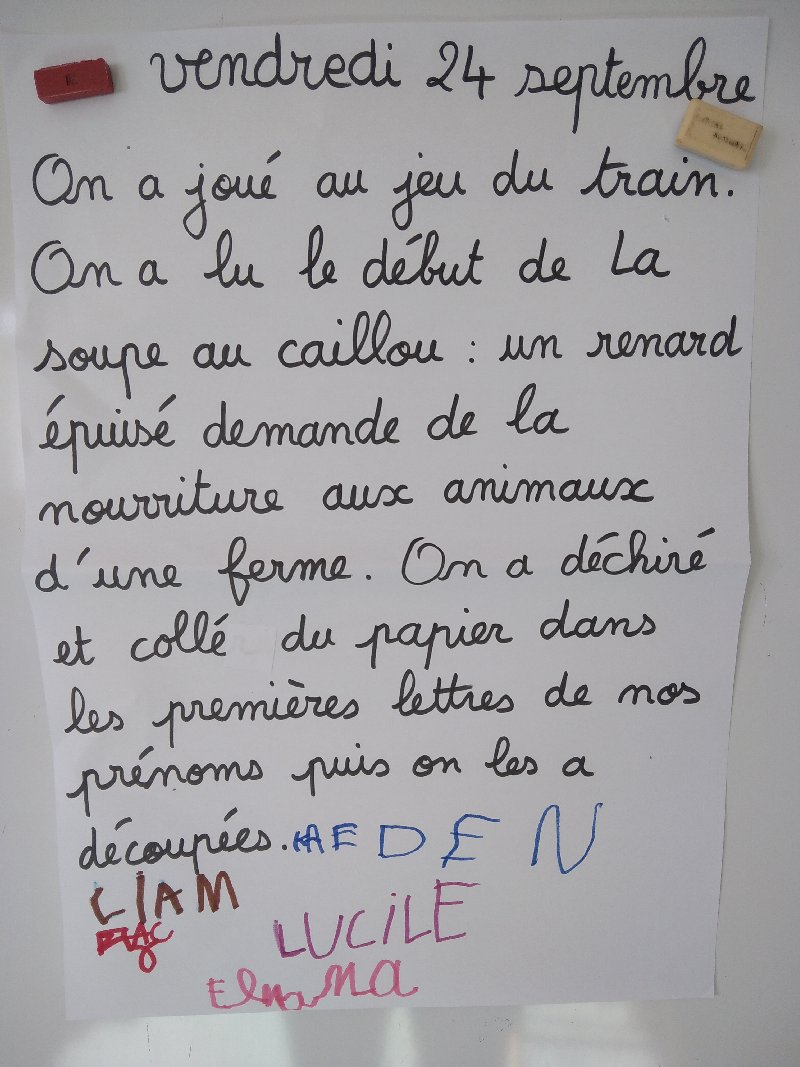 vendredi 24 septembre
On a joué au jeu du train.
On a lu le début de La
soupe au caillou : un renard
épuisé demande de la
nourriture aux animaux
d'une ferme. On a déchiré
et collé du papier dans
les premières lettres de nos
prénoms puis on les a
découpées. AEDEN
LIAM
LUCILE